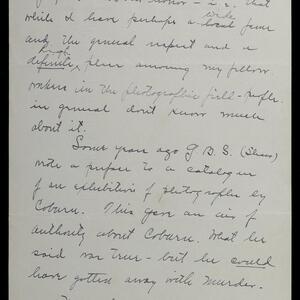 that
while I have perhaps a wide local fame
and the general respect and a
definite high place among my fellow
workers in the photographic field - people
in general don't know much
about it.
Some years ago G. B. S. (Shaw)
wrote a preface to a catalogue
of an exhibition of photographs by
Coburn. This gave an air of
authority about Coburn. What he
said was true - but he could
have gotten away with murder.